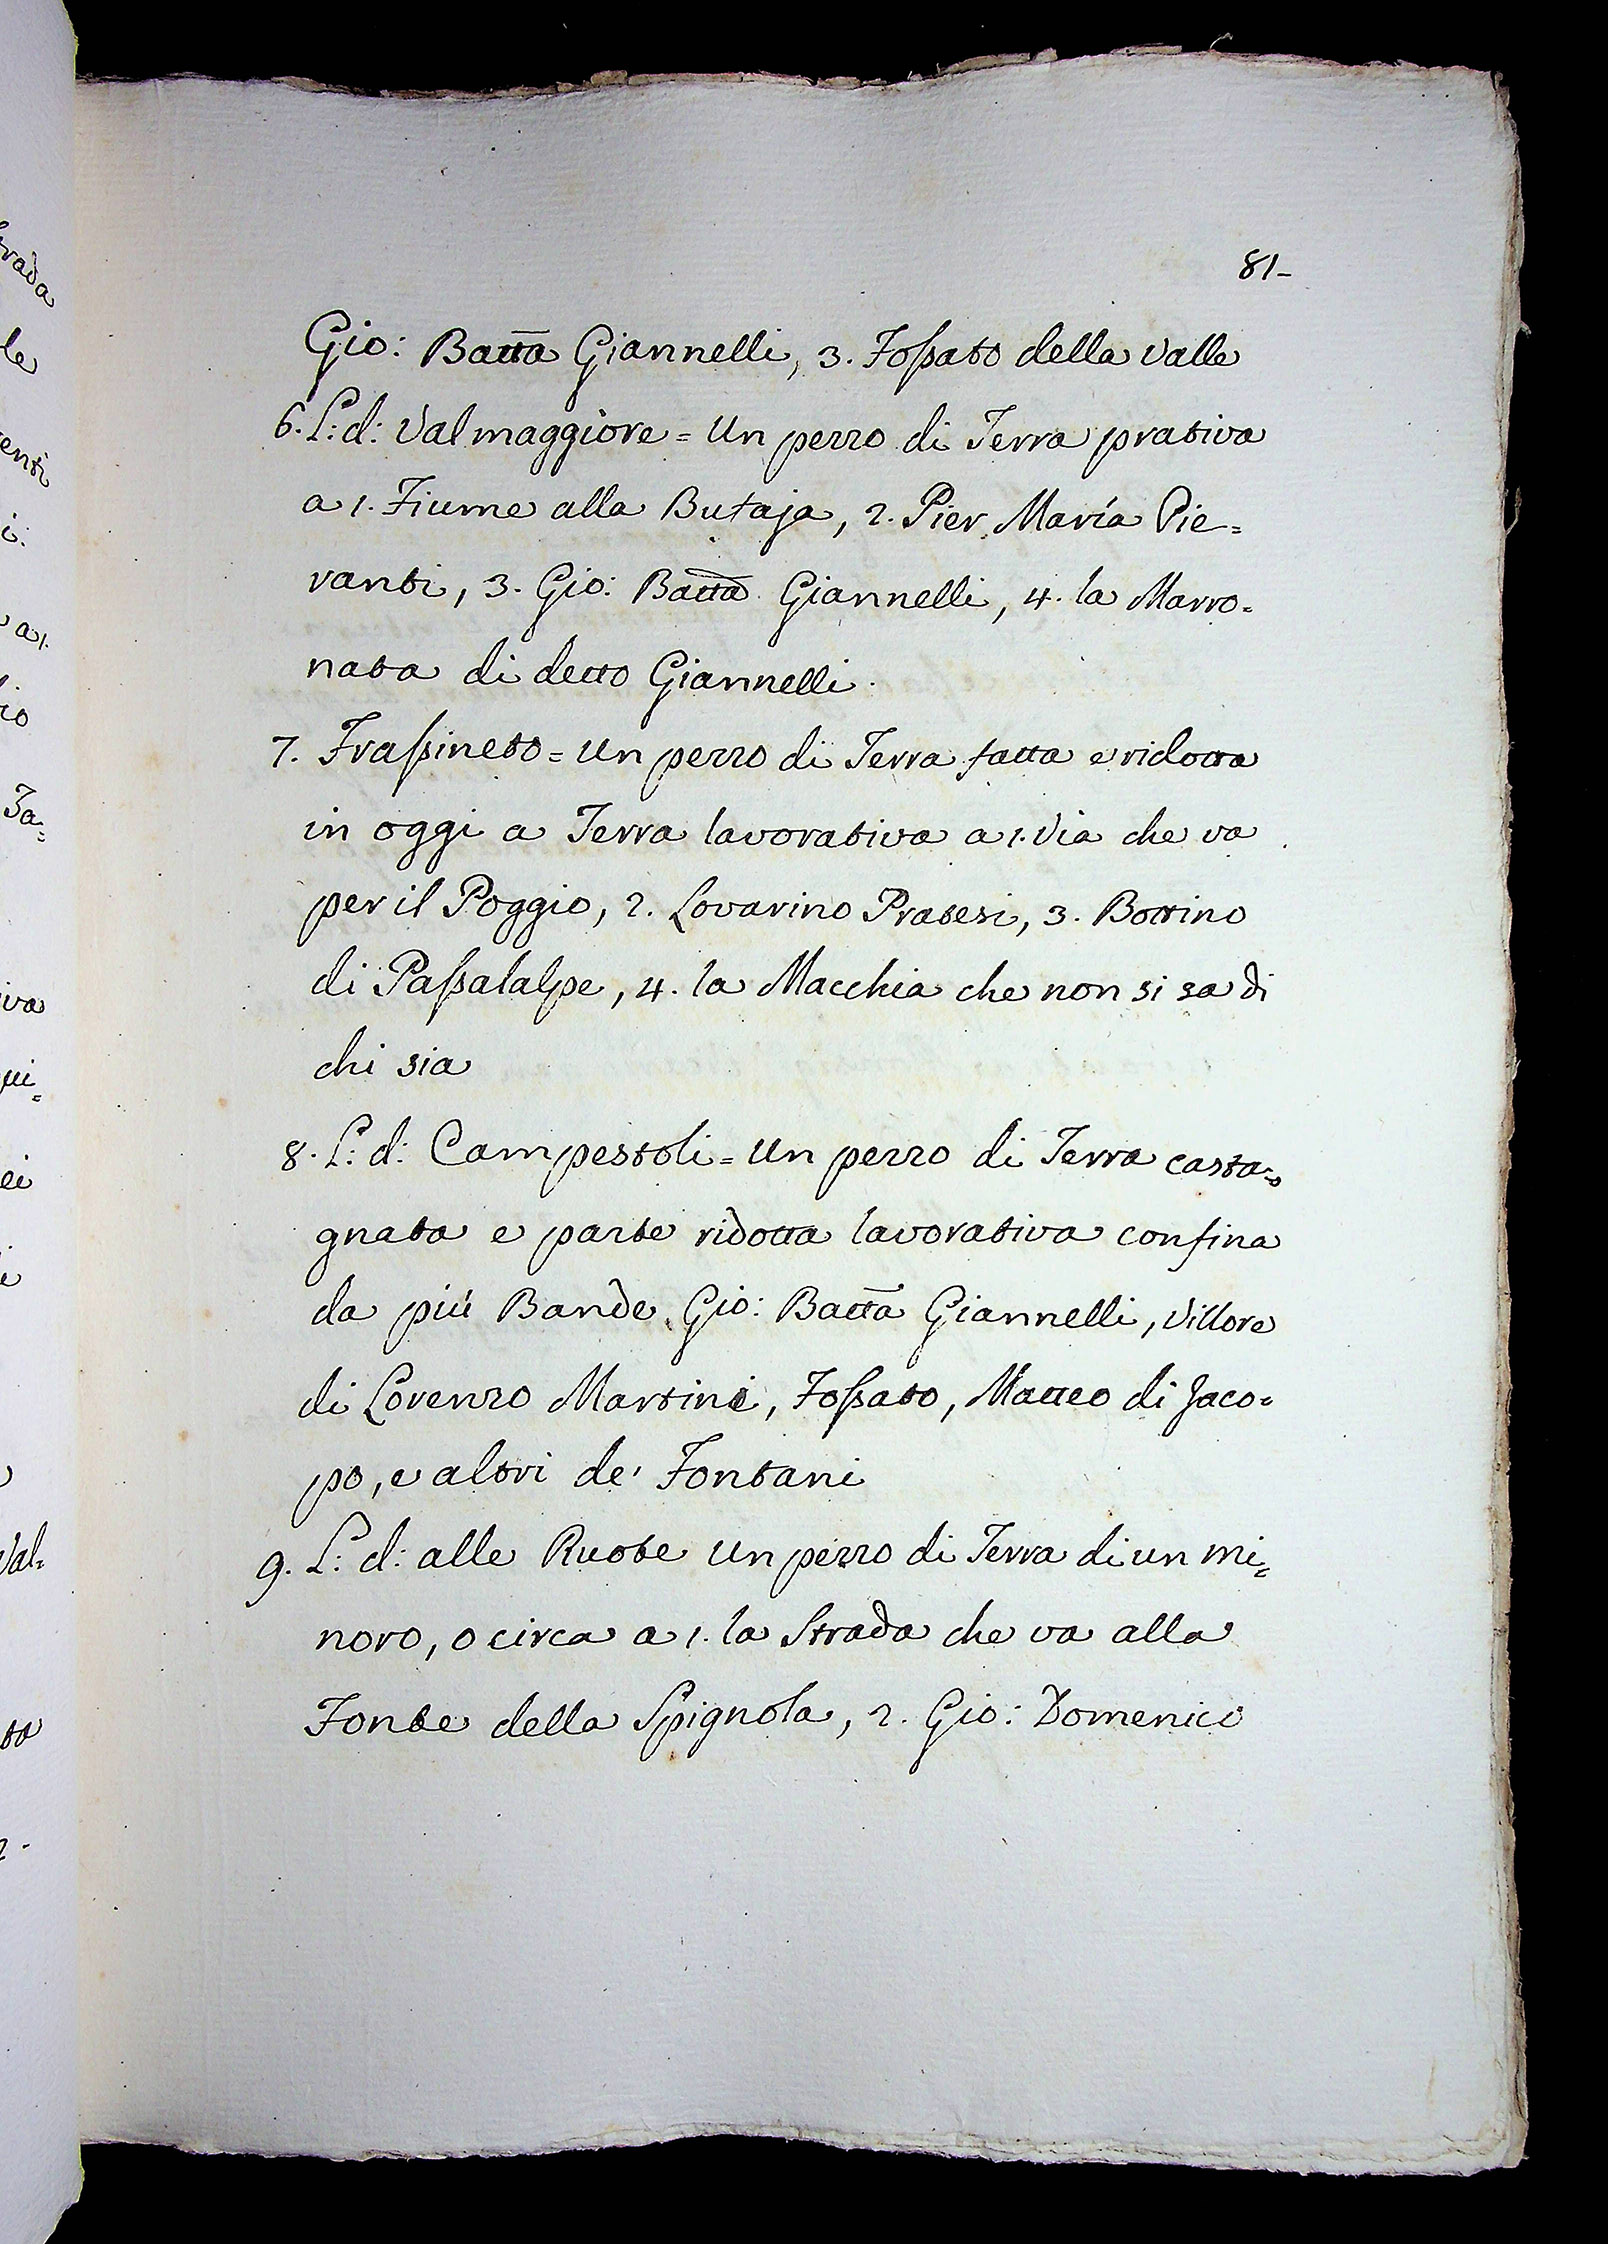 81-
Gio: Batta Giannelli, 3. Fossato della Valle
6. L: d: Val maggiore = Un pezzo di Terra prativa
a 1. Fiume alla Butaja, 2. Pier Maria Pie=
vanti, 3. Gio: Batta Giannelli, 4. la Marro=
nata di detto Giannelli.
7. Frassineto = Un pezzo di Terra fatta e ridotta
in oggi a Terra lavorativa a 1. Via che va
per il Poggio, 2. Lovarino Pratesi, 3. Bottino
di Passalalpe, 4. la Macchia che non si sa di
chi sia
8. L: d: Campestoli = Un pezzo di Terra casta=
gnata e parte ridotta lavorativa confina
da più Bande Gio: Batta Giannelli, Vittore
di Lorenzo Martini, Fossato, Matteo di Jaco=
po, e altri de' Fontani
9. L: d: alle Ruote Un pezzo di Terra di un mi=
noro, o circa a 1. la Strada che va alla
Fonte della Spignola, 2. Gio: Domenico